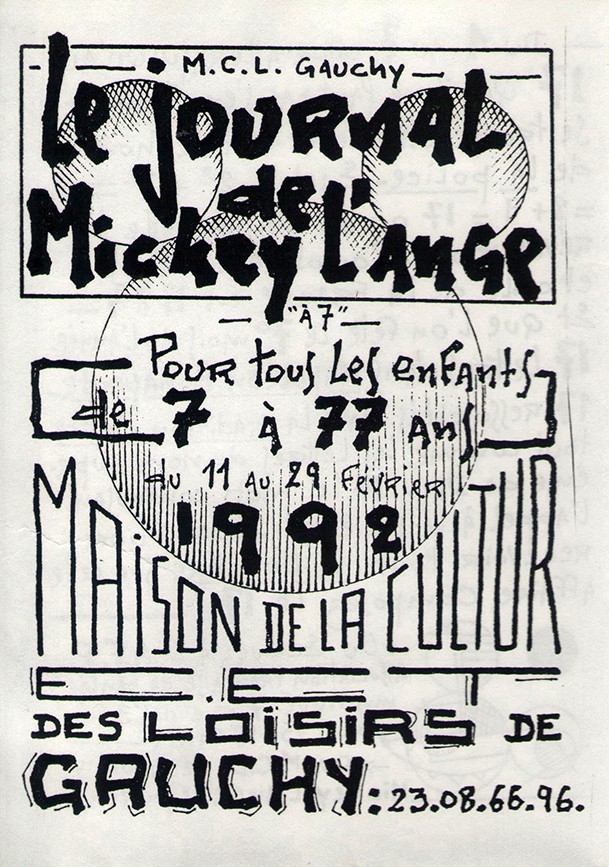 M.C.L. GAUCHY
Le JOURNAL
de
Mickey L'ANGE
"À 7"
POUR tous Les enfants
de 7 À 77 Ans
du 11 AU 29 Février
1992
MAiSON DE LA CULTUR
E.ET
DES LOiSiRS DE
GAUCHY: 23.08.66.96.